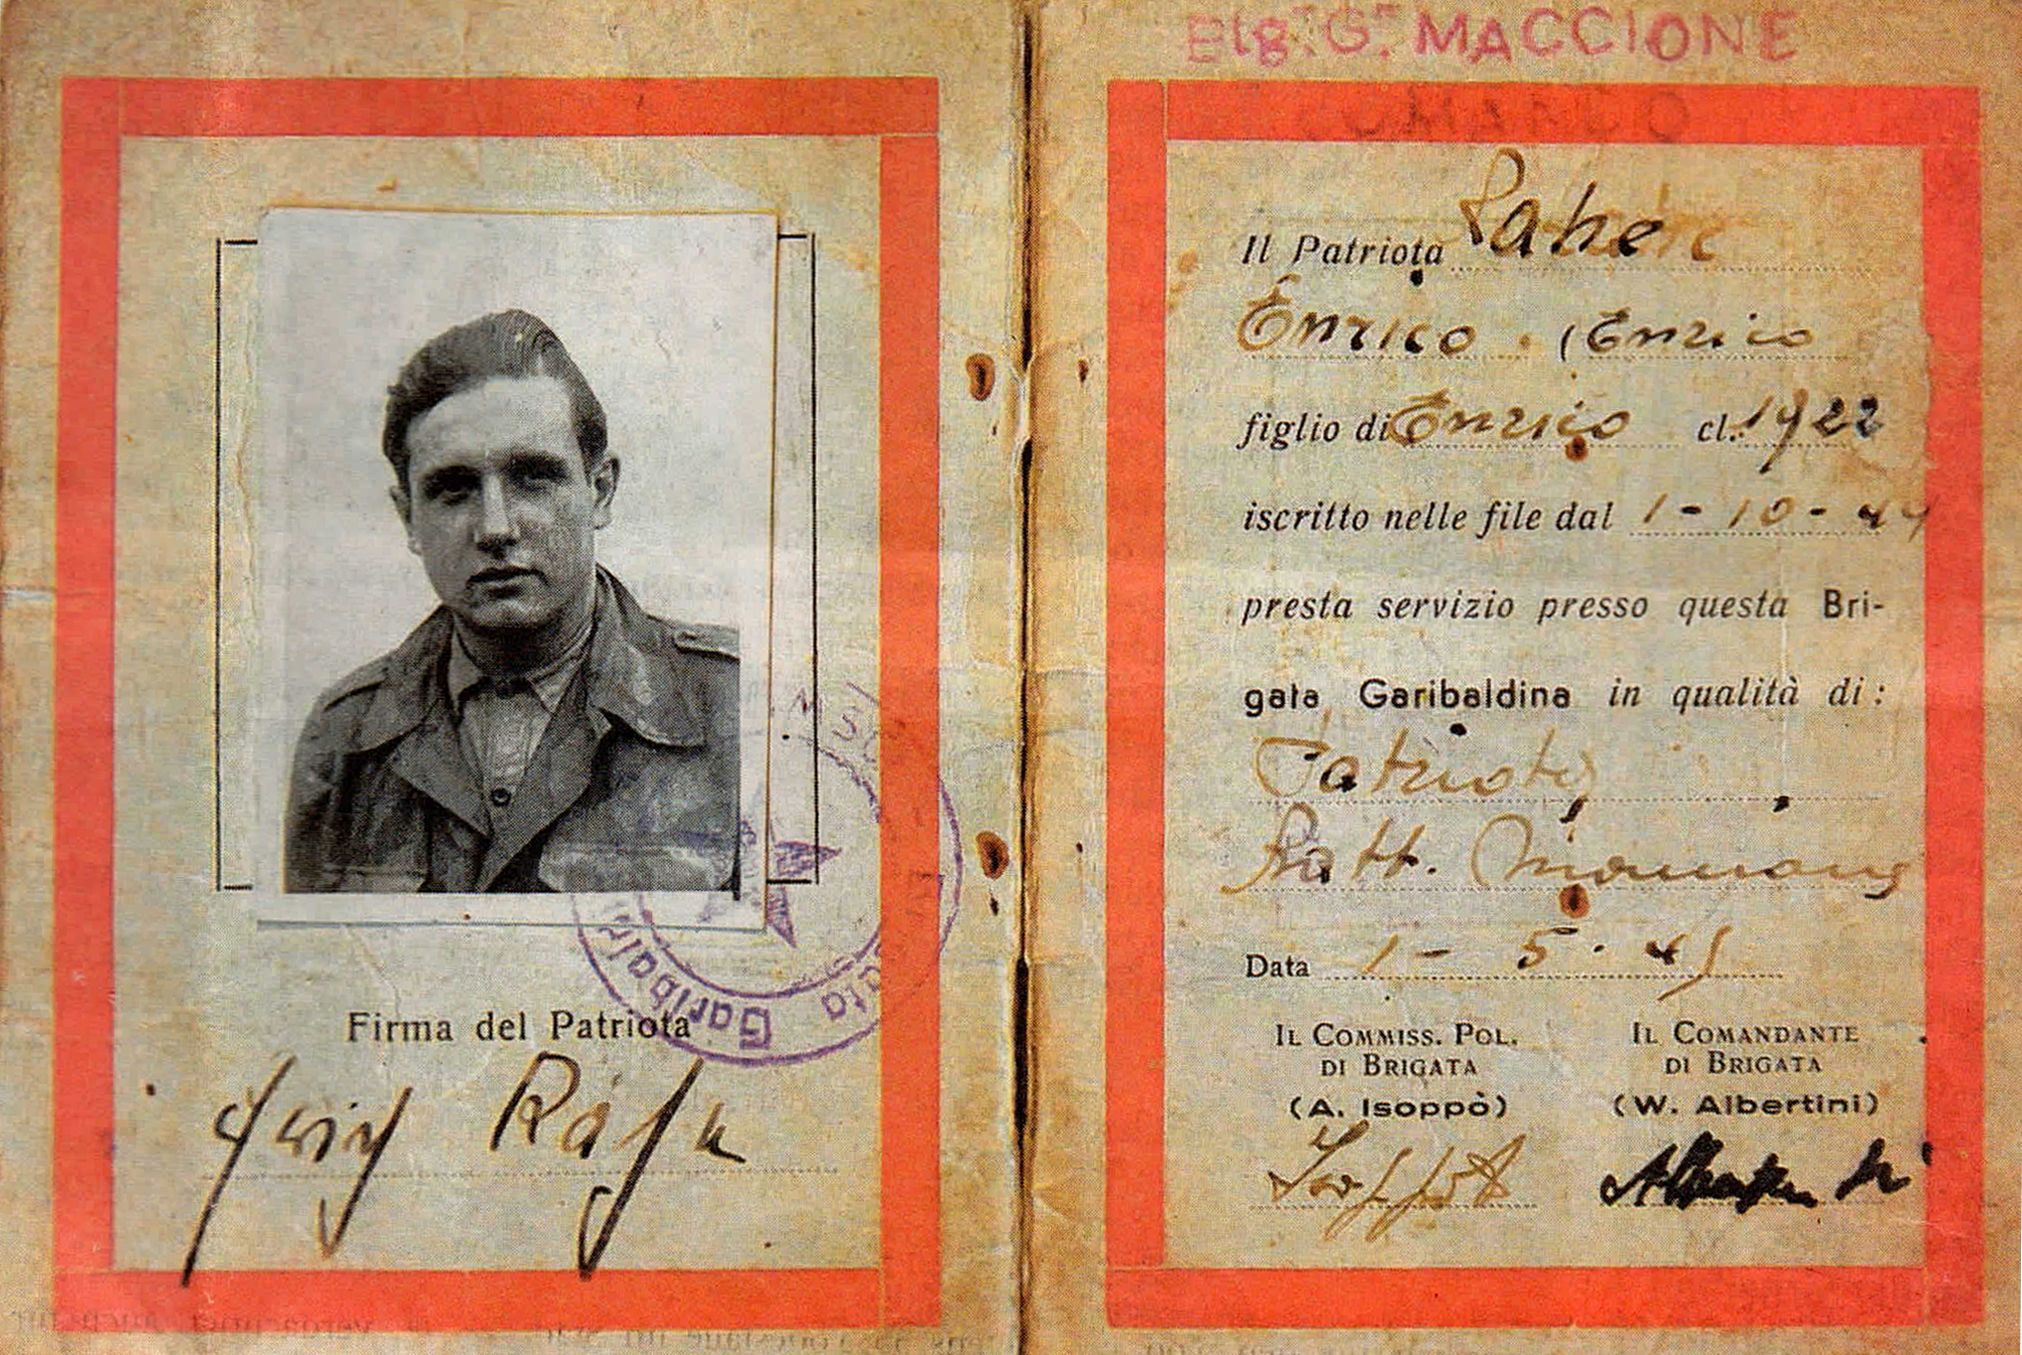 Firma del Patriota
Brig. G. MACCIONE
COMANDO
Il Patriota
Enrico. (Enrico
figlio di Enrico cl. 1922
iscritto nelle file dal 1-10-44
presta servizio presso questa Bri-
gata Garibaldina in qualità di:
Patriota
Batt.
Data 1-5-45
IL COMMISS. POL. DI BRIGATA
(A. Isoppò)
IL COMANDANTE DI BRIGATA
(W. Albertini)
Albertini